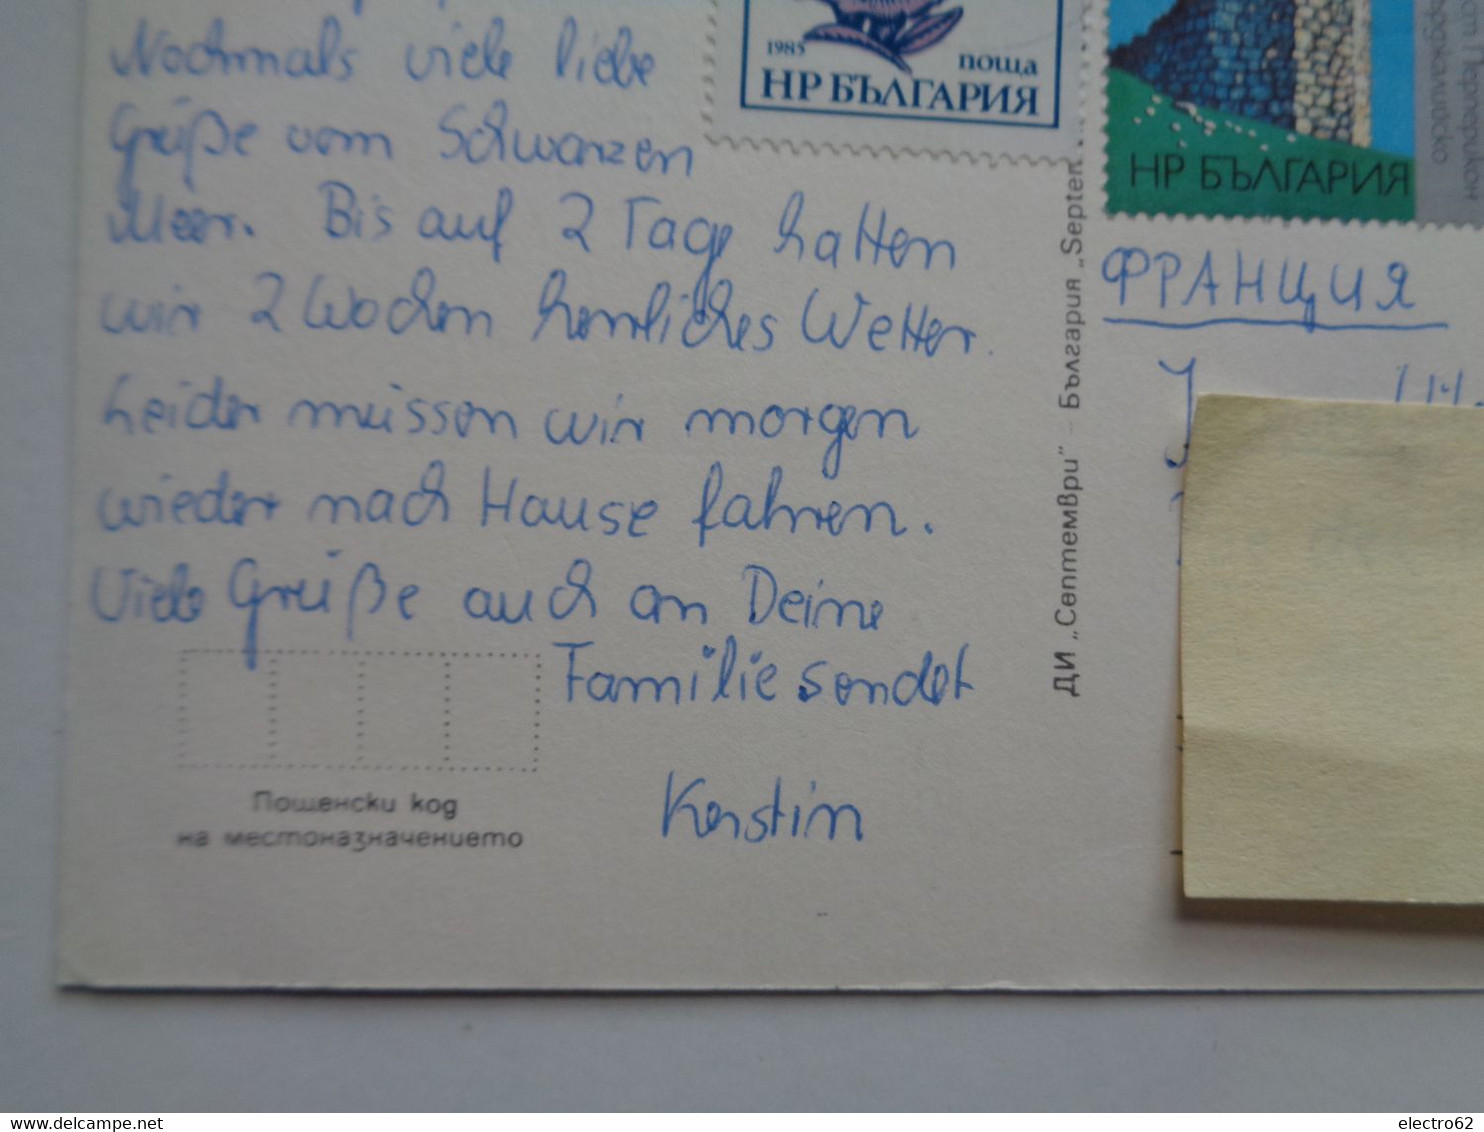 Nochmals viele liebe
Grüße vom Schwarzen
Meer. Bis auf 2 Tage hatten
wir 2 Wochen herrliches Wetter.
Leider müssen wir morgen
wieder nach Hause fahren.
Viele Grüße auch an Deine
Familie sendet
Kerstin
Пощенски код
на местоназначението
1985
поща
НР БЪЛГАРИЯ
НР БЪЛГАРИЯ
ДИ „Септември" – България „Septem
ФРАНЦИЯ
electro62